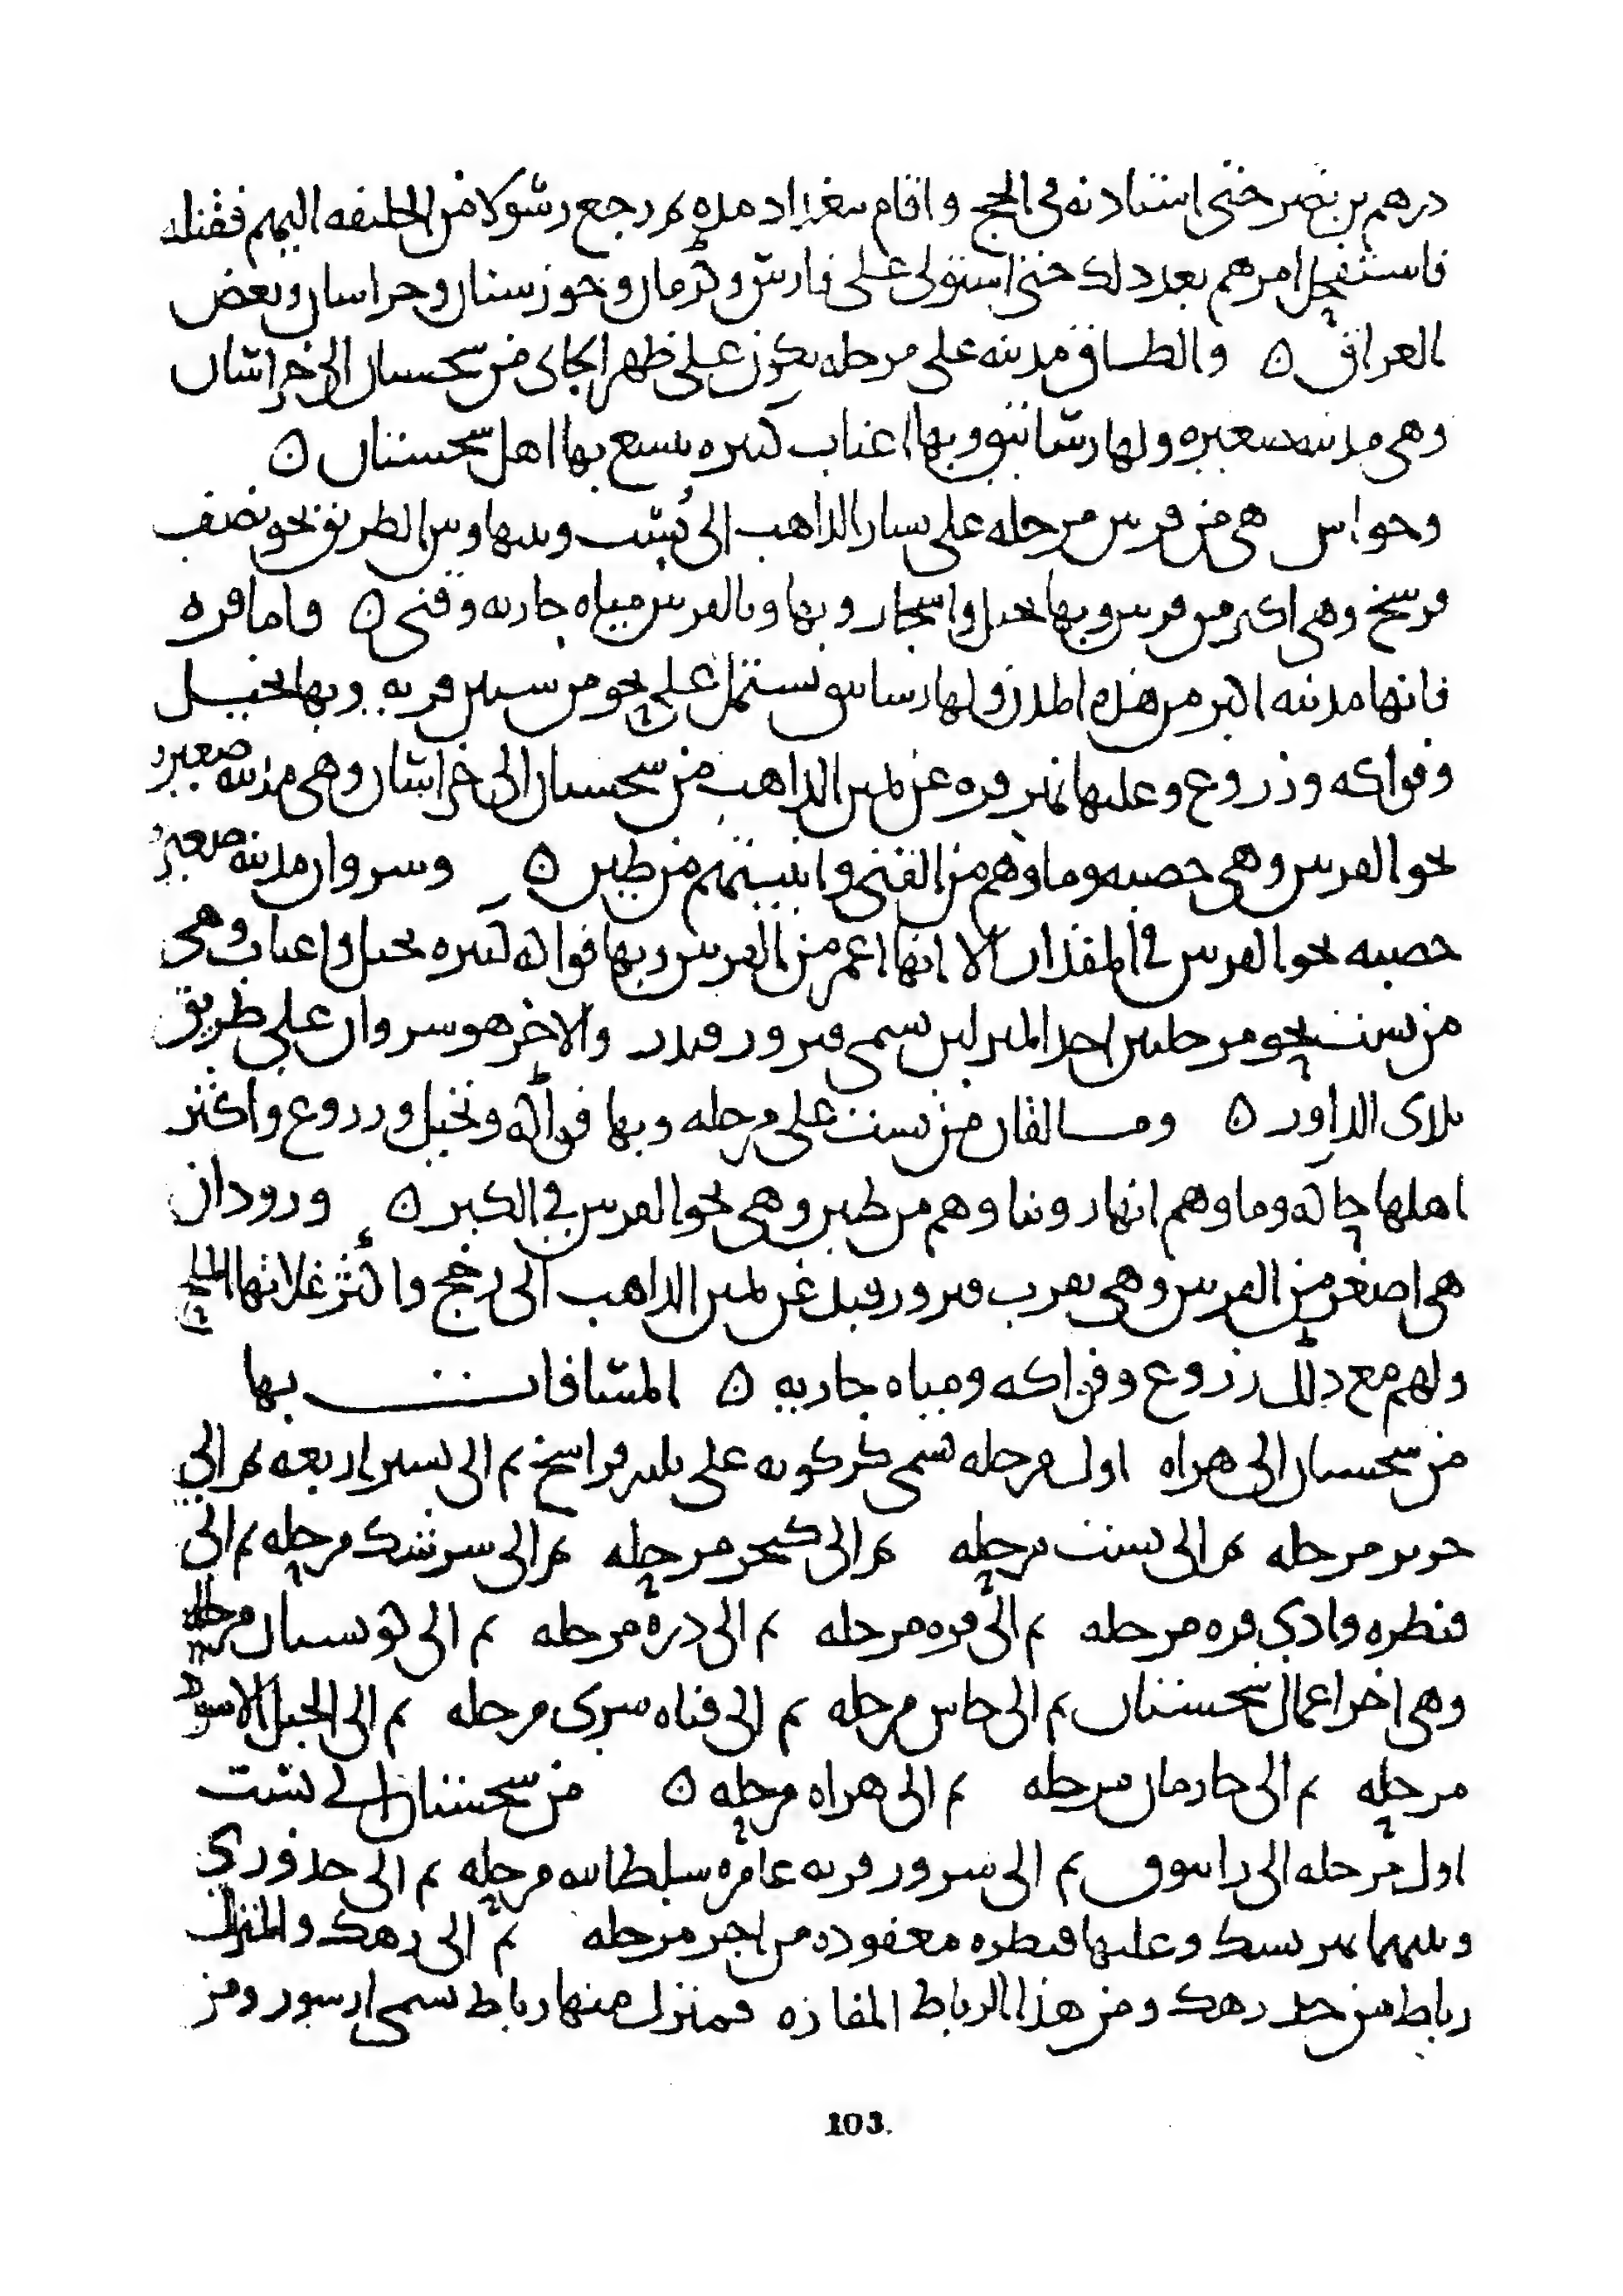 درهم بن نصر حتى استاذنه في الحج واقام ببغداد مده ثم رجع رسولا من الخليفه اليهم فقتله
فاستفحل امرهم بعد ذلك حتى استولى على فارس وكرمان وخوزستان وخراسان وبعض
العراق ه والطاق مدينه على مرحله تكون على ظهر الجاى من سجستان الى خراسان
وهى مدينه صغيره ولها رساتيق وبها اعناب كثيره يتسع بها اهل سجستان ه
وحواس هى من قرنين مرحله على يسار الذاهب الى بست وبينها وبين الطريق نحو نصف
فرسخ وهى اكبر من قرنين وبها نخيل واشجار وبها وبالقرنين مياه جاريه وقنى ه واما فره
فانها مدينه اكبر من هذه المدن ولها رساتيق تشتمل على نحو من ستين قريه وبها نخيل
وفواكه وزروع وعليها نهر فره عن يمين الذاهب من سجستان الى خراسان وهى مدينه صغيره
نحو القرنين وهى خصبه وماوهم من القنى وابنيتهم من طين ه وسروان مدينه صغيره
خصبه نحو القرنين في المقدار الا انها اعمر من القرنين وبها فواكه كثيره نخيل واعناب وهى
من بست نحو مرحلتين احد المنزلين يسمى فيروزقند والاخر هو سروان على طريق
بلدى الداور ه و‍ سالقان من بست على مرحله وبها فواكه ونخيل وزروع واكثر
اهلها حاكه وماوهم انهار وبناوهم من طين وهى نحو القرنين في الكبر ه وروذان
هى اصغر من القرنين وهى بقرب فيروزقند عن يمين الذاهب الى رخج واكثر غلاتها الملح
ولهم مع ذلك زروع وفواكه ومياه جاريه ه المسافات بها
من سجستان الى هراه اول مرحله تسمى كركويه على ثلثه فراسخ ثم الى بستر اربعه ثم الى
جوير مرحله ثم الى بست مرحله ثم الى كنجر مرحله ثم الى سرشك مرحله ثم الى
قنطره وادي فره مرحله ثم الى فره مرحله ثم الى دره مرحله ثم الى كوستان مرحله
وهى اخر اعمال سجستان ثم الى خاس مرحله ثم الى قناه سرى مرحله ثم الى الجبل الاسود
مرحله ثم الى جارمان مرحله ثم الى هراه مرحله ه من سجستان الى بست
اول مرحله الى زانبوق ثم الى سرور قريه عامره سلطانيه مرحله ثم الى حذوري
وبينهما نهر نيشك وعليها قنطره معقوده من اجر مرحله ثم الى دهك والمنزل
رباط من حد دهك ومن هذا الرباط المفازه فمنزل منها رباط يسمى ابسور ومن
103.